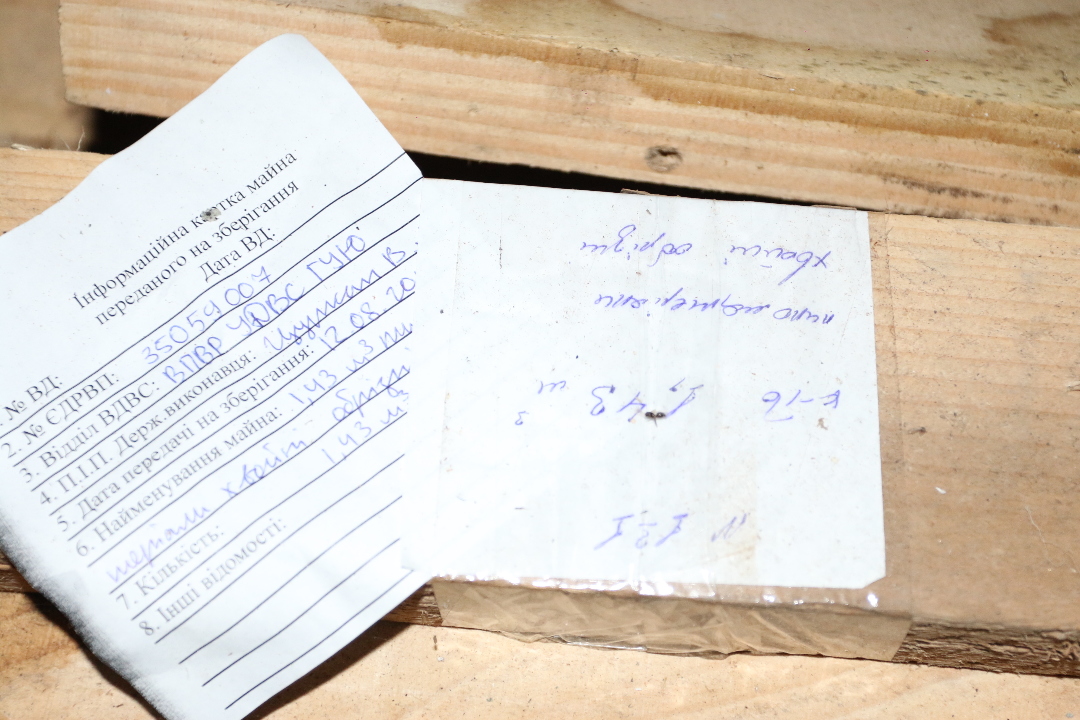 Інформаційна картка майна
переданого на зберігання
Дата ВД:
№ ВД:
2. № ЄДРВП: 35054007
3. Відділ ВДВС: ВПВР УДВС ГУЮ
4. П.І.П. Держ.виконавця: В.
5. Дата передачі на зберігання: 12.08.20
6. Найменування майна: 1,43 м3 пи
теріали хвойні обрізні
7. Кількість: 1,43 м3
8. Інші відомості:
хвойні обрізні
пиломатеріали
к-ть 1,43 м3